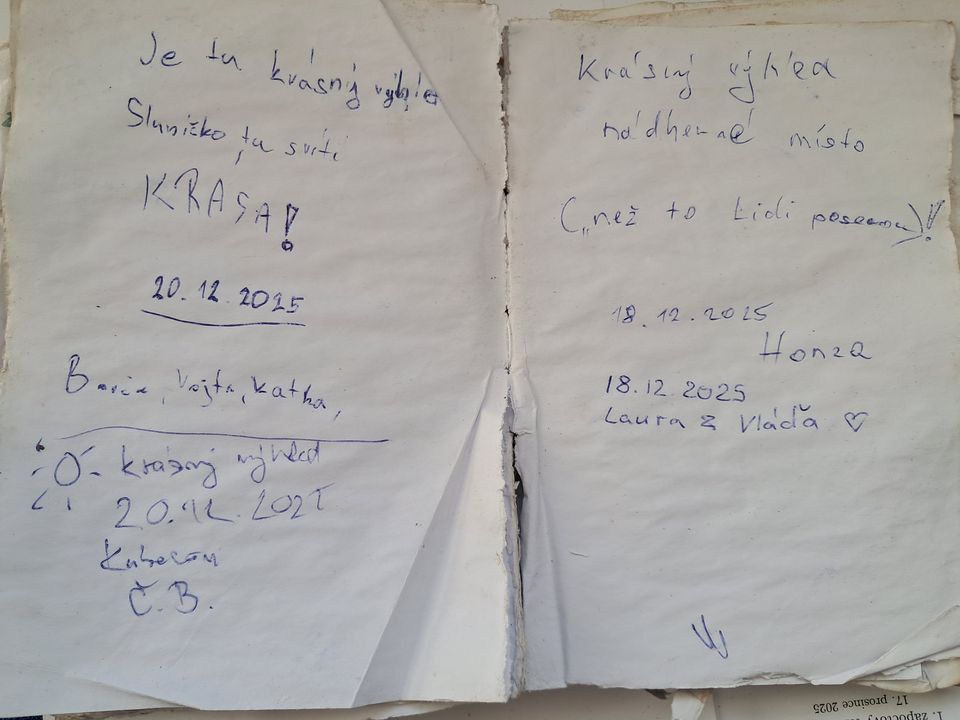 Je tu krásný výhled
Sluníčko tu svítí
KRÁSA!
20.12.2025
Vojta, Katka,
krásný výhled
20.12.2025
Č.B.
Krásný výhled
nádherné místo
(„než to Lidi poserou)!
18.12.2025
Honza
18.12.2025
Laura & Vláďa ♡
1. zápočtový
17. prosince 2025